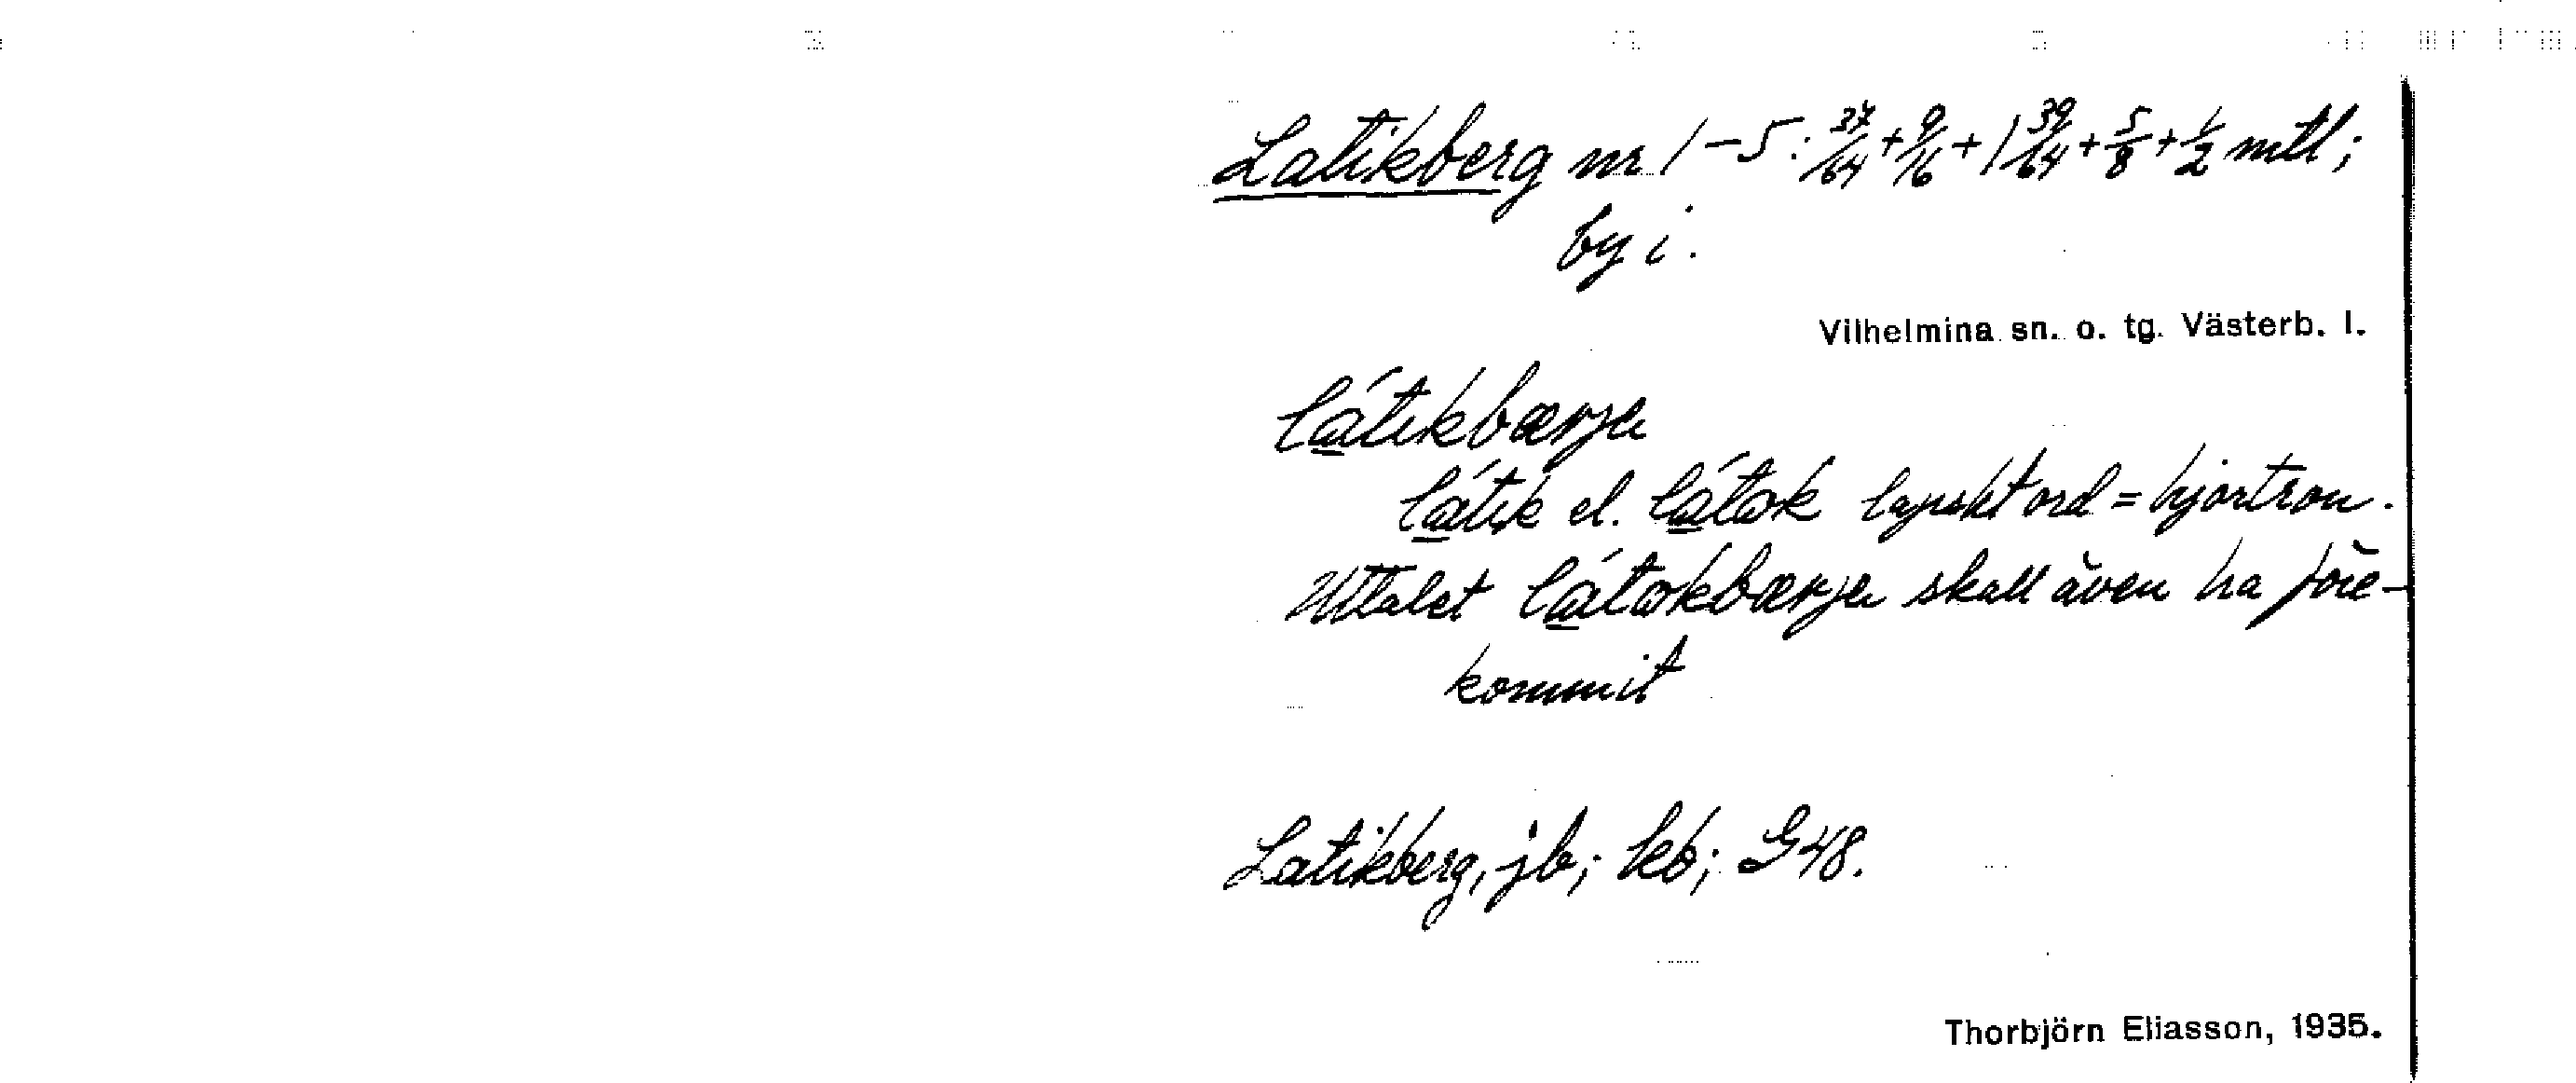 Latikberg nr 1-5: 37/64 + 9/16 + 1 39/64 + 5/8 + 1/2 mtl;
by i.
Vilhelmina sn. o. tg. Västerb. l.
látikbærjɛ
látik el. látok lapskt ord = hjortron.
Uttalet látokbærjɛ skall även ha före-
kommit
Latikberg, jb; kb; G48.
Thorbjörn Eliasson, 1935.